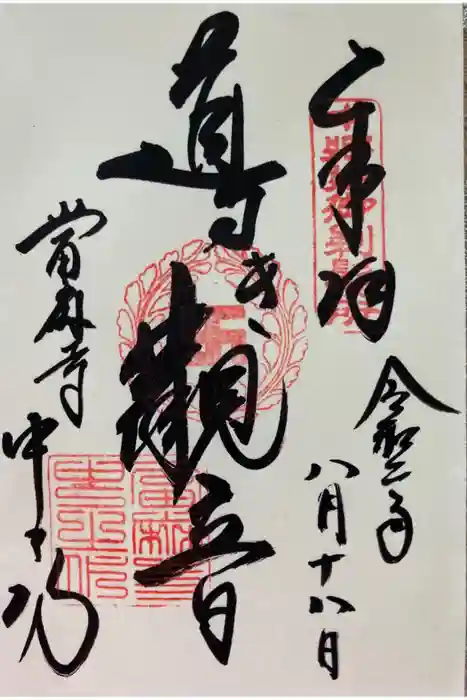 奉拝
令和二年
八月十八日
導き觀音
當麻寺
中之坊